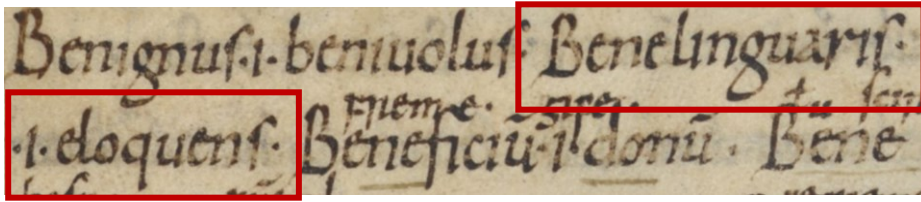 Benignus·i· beniuolus· Benelinguaris·
·i· eloquens· Beneficiū·i· donū· Bene